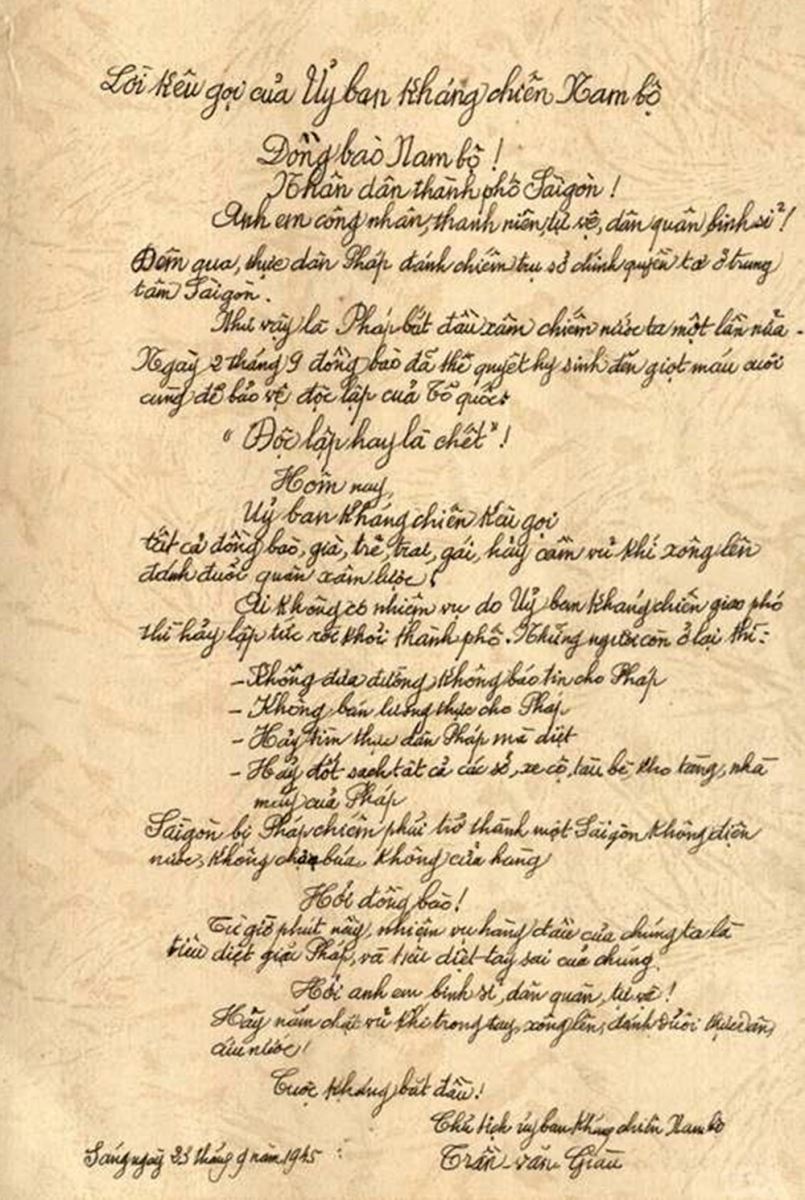 Lời kêu gọi của Ủy ban kháng chiến Nam bộ
Đồng bào Nam bộ !
Nhân dân thành phố Sàigòn !
Anh em công nhân, thanh niên, tự vệ, dân quân, binh sĩ !
Đêm qua, thực dân Pháp đánh chiếm trụ sở chính quyền ta ở trung
tâm Sàigòn.
Như vậy là Pháp bắt đầu xâm chiếm nước ta một lần nữa.
Ngày 2 tháng 9 đồng bào đã thề quyết hy sinh đến giọt máu cuối
cùng để bảo vệ độc lập của Tổ quốc:
" Độc lập hay là chết" !
Hôm nay,
Uỷ ban kháng chiến kêu gọi
tất cả đồng bào, già, trẻ, trai, gái, hãy cầm vũ khí xông lên
đánh đuổi quân xâm lược !
Ai không có nhiệm vụ do Uỷ ban kháng chiến giao phó
thì hãy lập tức rời khỏi thành phố. Những người còn ở lại thì:
- Không đưa đường, không báo tin cho Pháp
- Không bán lương thực cho Pháp
- Hãy tìm thực dân Pháp mà diệt
- Hãy đốt sạch tất cả các sở, xe cộ, tàu bè, kho tàng, nhà
máy của Pháp
Sàigòn bị Pháp chiếm phải trở thành một Sàigòn không điện
nước, không chợ búa, không cửa hàng
Hỡi đồng bào!
Từ giờ phút này, nhiệm vụ hàng đầu của chúng ta là
tiêu diệt giặc Pháp, và tiêu diệt tay sai của chúng.
Hỡi anh em binh sĩ, dân quân, tự vệ !
Hãy nắm chặt vũ khí trong tay, xông lên, đánh đuổi thực dân,
cứu nước!
Cuộc kháng bắt đầu!
Chủ tịch ủy ban kháng chiến Nam bộ
Sáng ngày 23 tháng 9 năm 1945 :
Trần văn Giàu